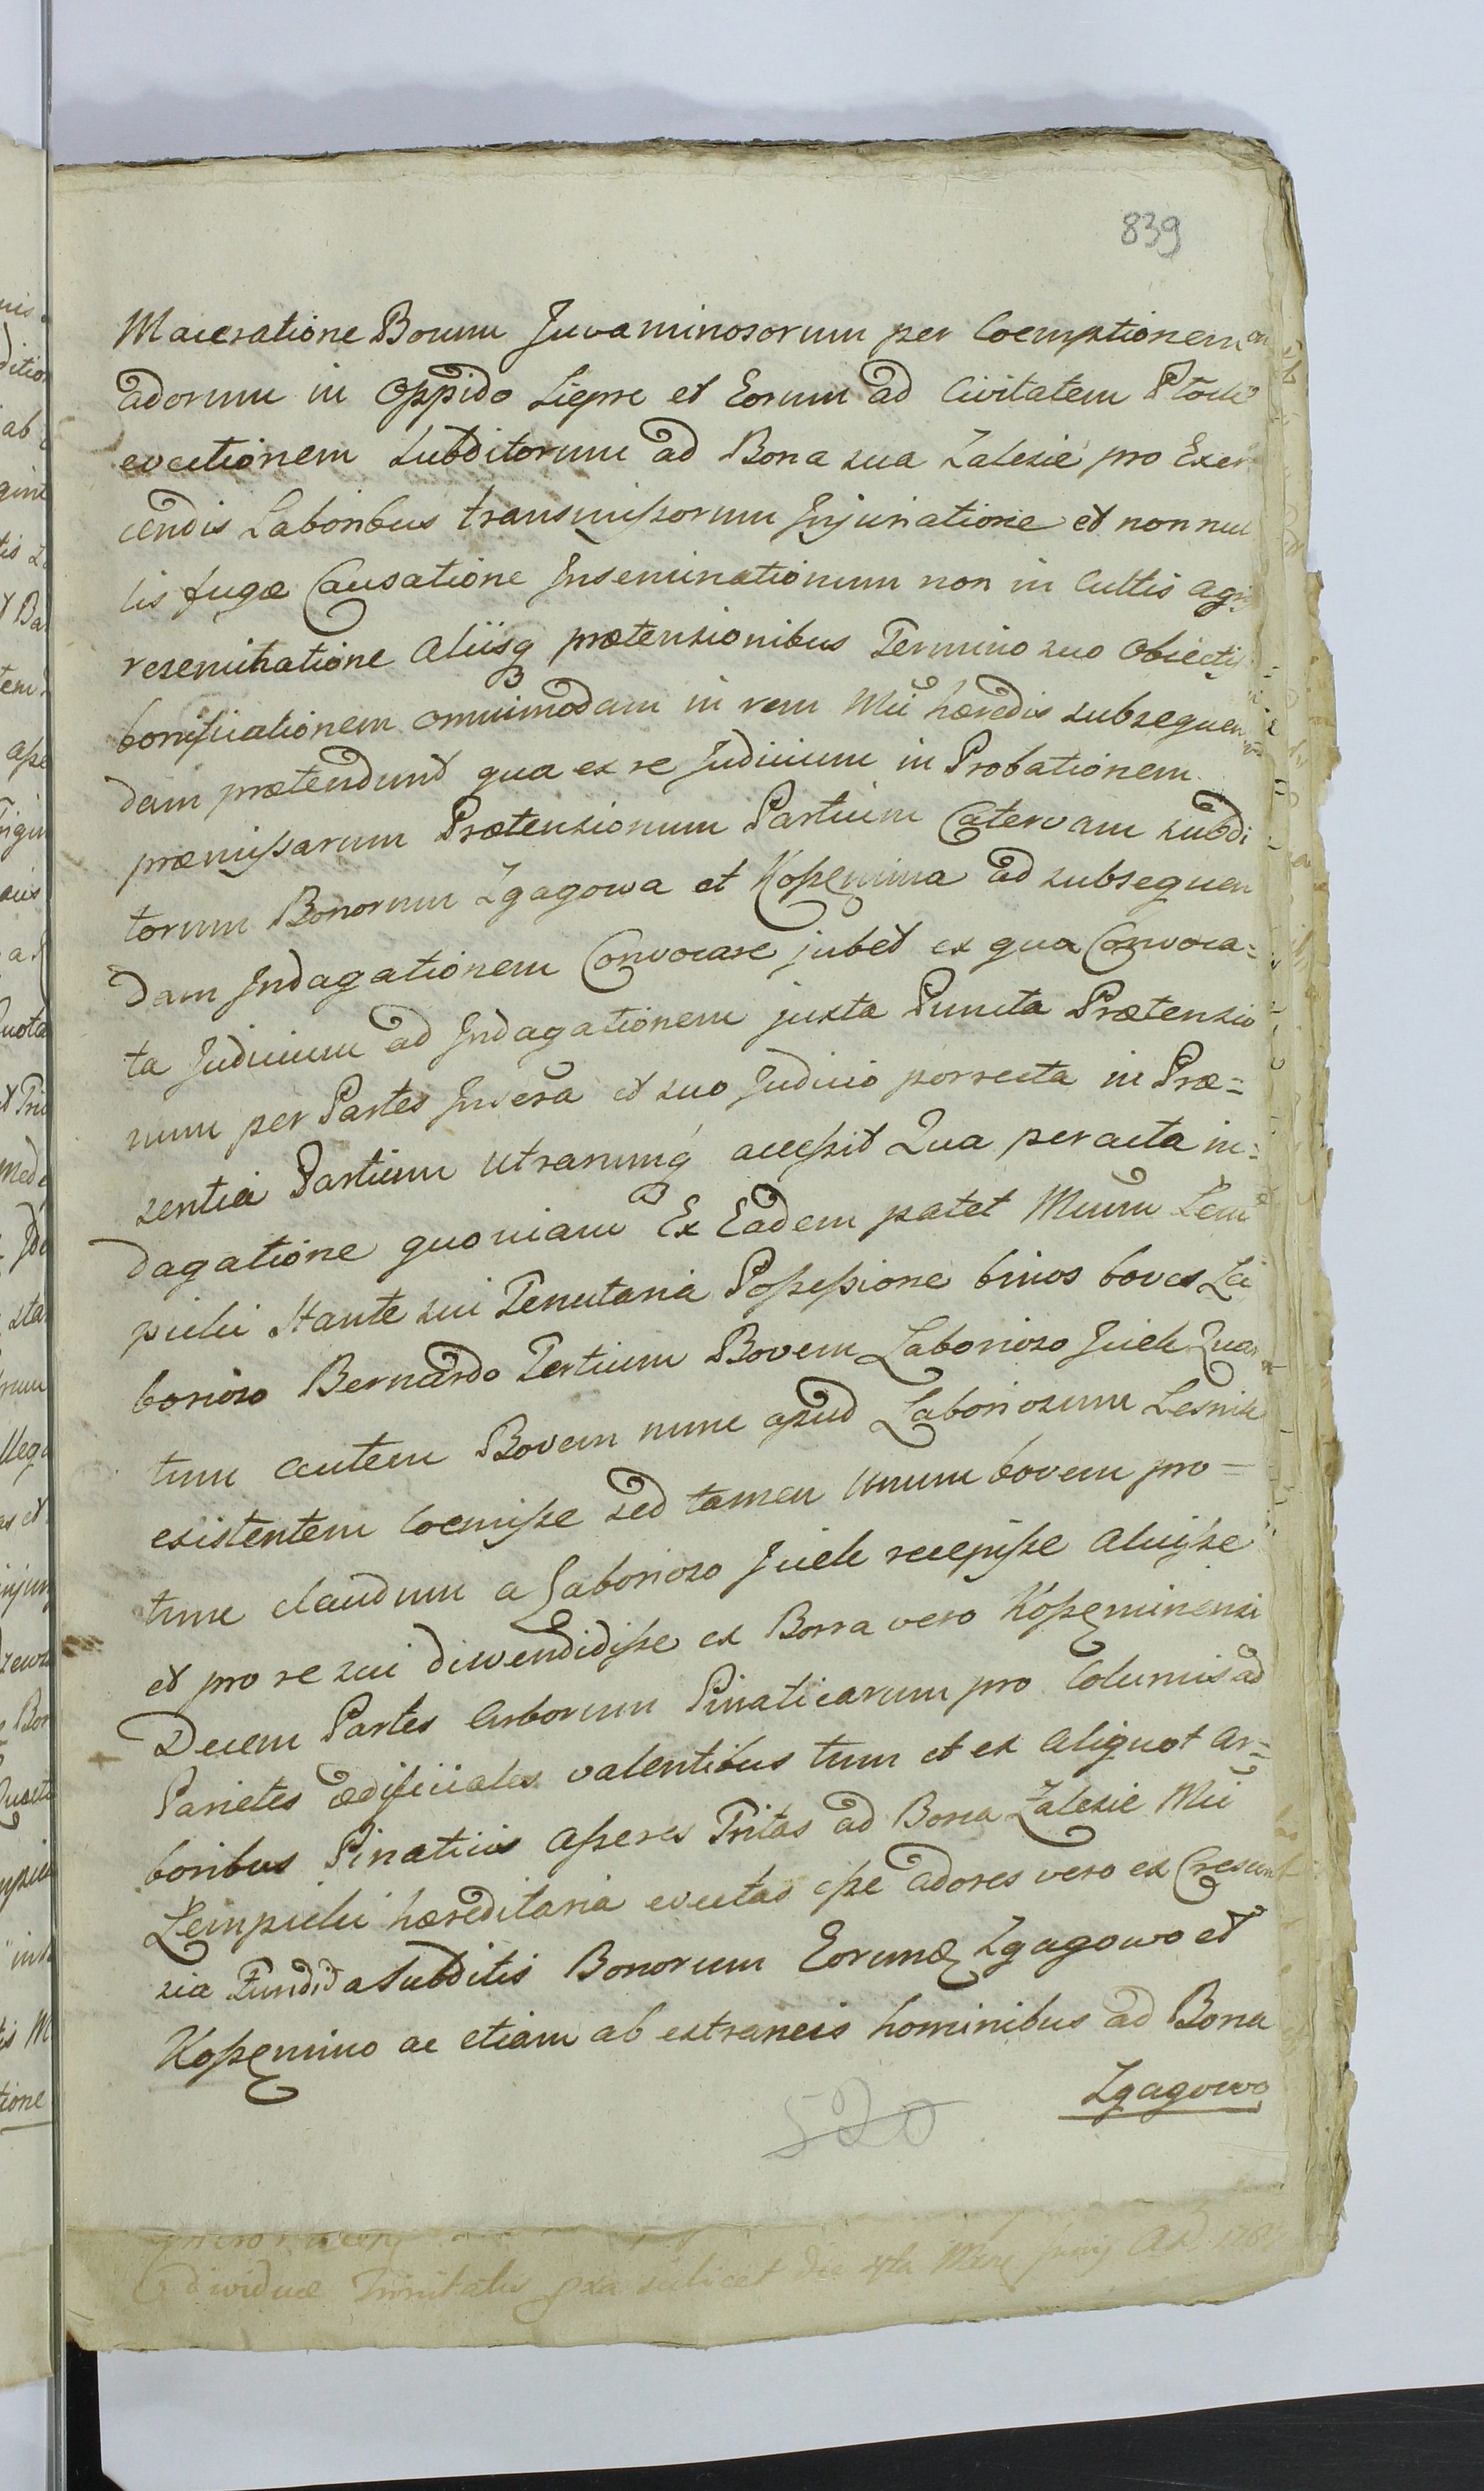 839
Maceratione Boum Juvaminosorum per Coemptionem
adorum in Oppido Liepre et Eorum ad Civitatem
evectionem Subditorum ad Bona sua Zalesie pro Exer
cendis Laboribus transmissorum Injuriatione et non nul
lis fugæ Causatione Inseminationum non in Cultis agris
reseminatione aliisq prætensionibus Termino suo Obiectis
bonificationem omnimodam in rem Mci hæredis subsequen
dam prætendunt qua ex re Judicium in Probationem
præmissarum Prætensionum Partium Catervam subdi
torum Bonorum Zgagowa et Kossemina ad subsequen
dam Indagationem Convocare jubet ex qua Convoca=
ta Judicium ad Indagationem juxta Puncta Prætensio
num per Partes Inversa et suo Judicio porrecta in Præ=
sentia Partium utrarumq accessit Qua peracta in=
dagatione quoniam Ex Eadem patet Mcum Lem
picki Stante sui Tenutaria Possessione binos boves La
borioso Bernardo Tertium Bovem Laborioso Jucik Quar
tum autem Bovem nunc apud Laboriosum Lesnik
existentem Coemisse sed tamen unum bovem pro=
tunc claudum a Laborioso Jucik recepisse aluisse
et pro re sui divendidisse ex Borra vero Kosseminensi
Decem Partes Arborum Pinaticarum pro Columis ad
Parietes ædificiales valentibus tum et ex aliquot ar=
boribus Pinaticis Asseres Tritas ad Bona Zalesie Mci
Lempicki hæreditaria evectas esse adores vero ex Crescen
sia Fundi a Subditis Bonorum Eorund Zgagowo et
Kossemino ac etiam ab extraneis hominibus ad Bona
Zgagowo
520
dividuæ Trinitatis pxa scilicet die